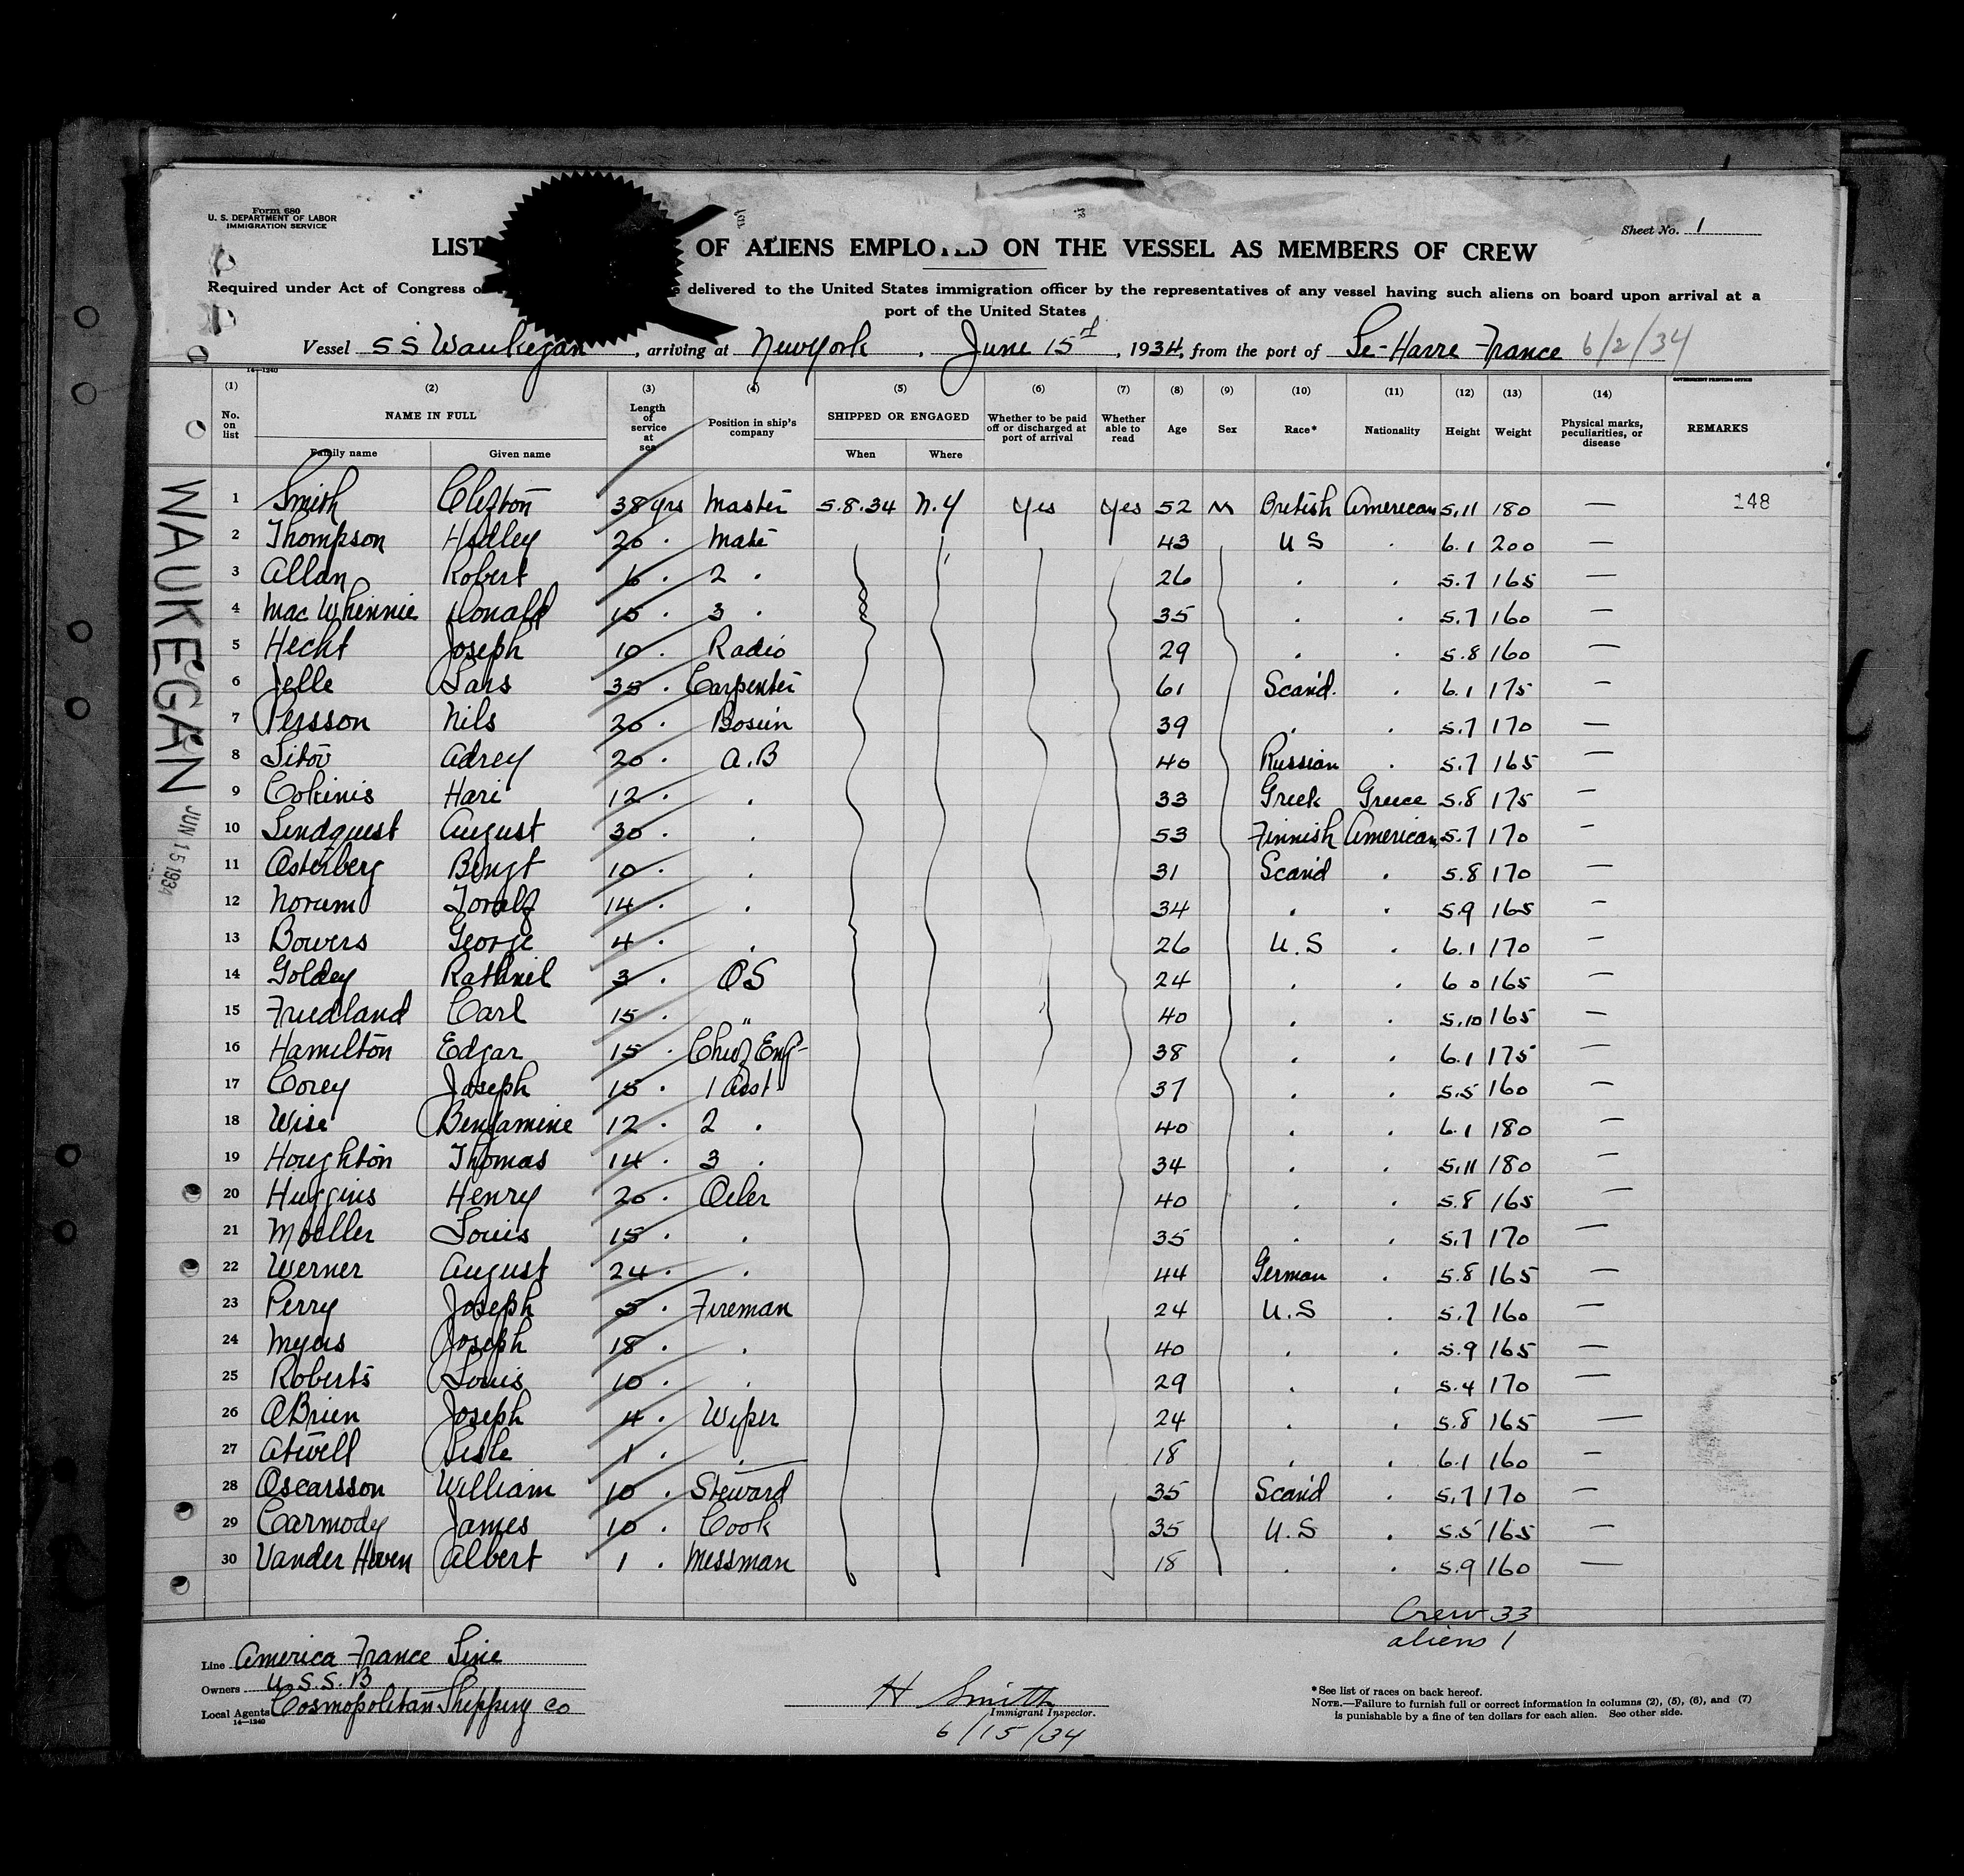 Form 680
U. S. DEPARTMENT OF LABOR
IMMIGRATION SERVICE
Sheet No. 1
LIST OF ALIENS EMPLOYED ON THE VESSEL AS MEMBERS OF CREW
Required under Act of Congress delivered to the United States immigration officer by the representatives of any vessel having such aliens on board upon arrival at a
port of the United States
Vessel SS Waukegan, arriving at New York, June 15, 1934, from the port of Le-Havre France 6/2/34
14—1240
GOVERNMENT PRINTING OFFICE
(1) (2) (3) (4) (5) (6) (7) (8) (9) (10) (11) (12) (13) (14)
No. on list NAME IN FULL Length of service at sea Position in ship's company SHIPPED OR ENGAGED Whether to be paid off or discharged at port of arrival Whether able to read Age Sex Race* Nationality Height Weight Physical marks, peculiarities, or disease REMARKS
Family name Given name When Where
1 Smith Clifton 38 yrs Master 5.8.34 N.Y Yes Yes 52 M British American 5.11 180 — 148
2 Thompson Hadley 20 . Mate 43 U S . 6.1 200 —
3 Allan Robert 6 . 2 . 26 . . 5.7 165 —
4 MacWhinnie Donald 15 . 3 . 35 . . 5.7 160 —
5 Hecht Joseph 10 . Radio 29 . . 5.8 160 —
6 Jelle Lars 35 . Carpenter 61 Scand. . 6.1 175 —
7 Persson Nils 20 . Bosun 39 . . 5.7 170 —
8 Titov Adrey 20 . A.B 40 Russian . 5.7 165 —
9 Cokinis Hari 12 . . 33 Greek Greece 5.8 175 —
10 Lindquest August 30 . . 53 Finnish American 5.7 170 —
11 Osterberg Bengt 10 . . 31 Scand . 5.8 170 —
12 Norum Toralf 14 . . 34 . . 5.9 165 —
13 Bowers George 4 . . 26 U.S . 6.1 170 —
14 Goldey 3 . OS 24 . . 6 0 165 —
15 Friedland Carl 15 . " 40 . . 5.10 165 —
16 Hamilton Edgar 15 . Chief Eng- 38 . . 6.1 175 —
17 Corey Joseph 15 . 1 Asst 37 . . 5.5 160 —
18 Wise Benjamine 12 . 2 . 40 . . 6.1 180 —
19 Houghton Thomas 14 . 3 . 34 . . 5.11 180 —
20 Huggins Henry 20 . Oiler 40 . . 5.8 165 —
21 Moeller Louis 15 . . 35 . . 5.7 170 —
22 Werner August 24 . . 44 German . 5.8 165 —
23 Perry Joseph 5 . Fireman 24 U.S . 5.7 160 —
24 Myers Joseph 18 . . 40 . . 5.9 165 —
25 Roberts Louis 10 . . 29 . . 5.4 170 —
26 OBrien Joseph 4 . Wiper 24 . . 5.8 165 —
27 Atwell Lisle 1 . . 18 . . 6.1 160 —
28 Oscarsson William 10 . Steward 35 Scand . 5.7 170 —
29 Carmody James 10 . Cook 35 U.S . 5.5 165 —
30 Vander Hoven Albert 1 . Messman 18 . . 5.9 160 —
WAUKEGAN
JUN 15 1934
Crew 33
aliens 1
Line America France Line
Owners U.S.S.B
Local Agents Cosmopolitan Shipping Co
14—1240
H Smith
Immigrant Inspector.
6/15/34
*See list of races on back hereof.
NOTE.—Failure to furnish full or correct information in columns (2), (5), (6), and (7)
is punishable by a fine of ten dollars for each alien. See other side.